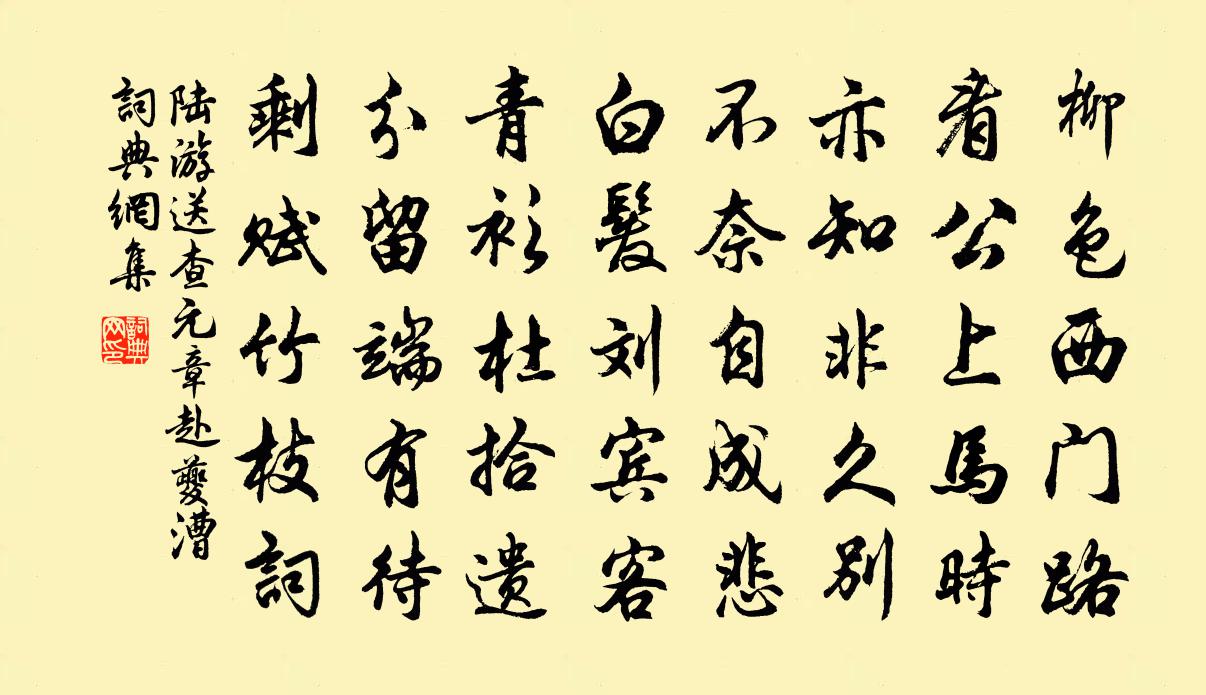 柳色西门路
看公上馬時
亦知非久别
不奈自成悲
白髮刘宾客
青衫杜拾遗
分留端有待
剩赋竹枝詞
陆游送查元章赴夔漕
詞典網集
詞典网印